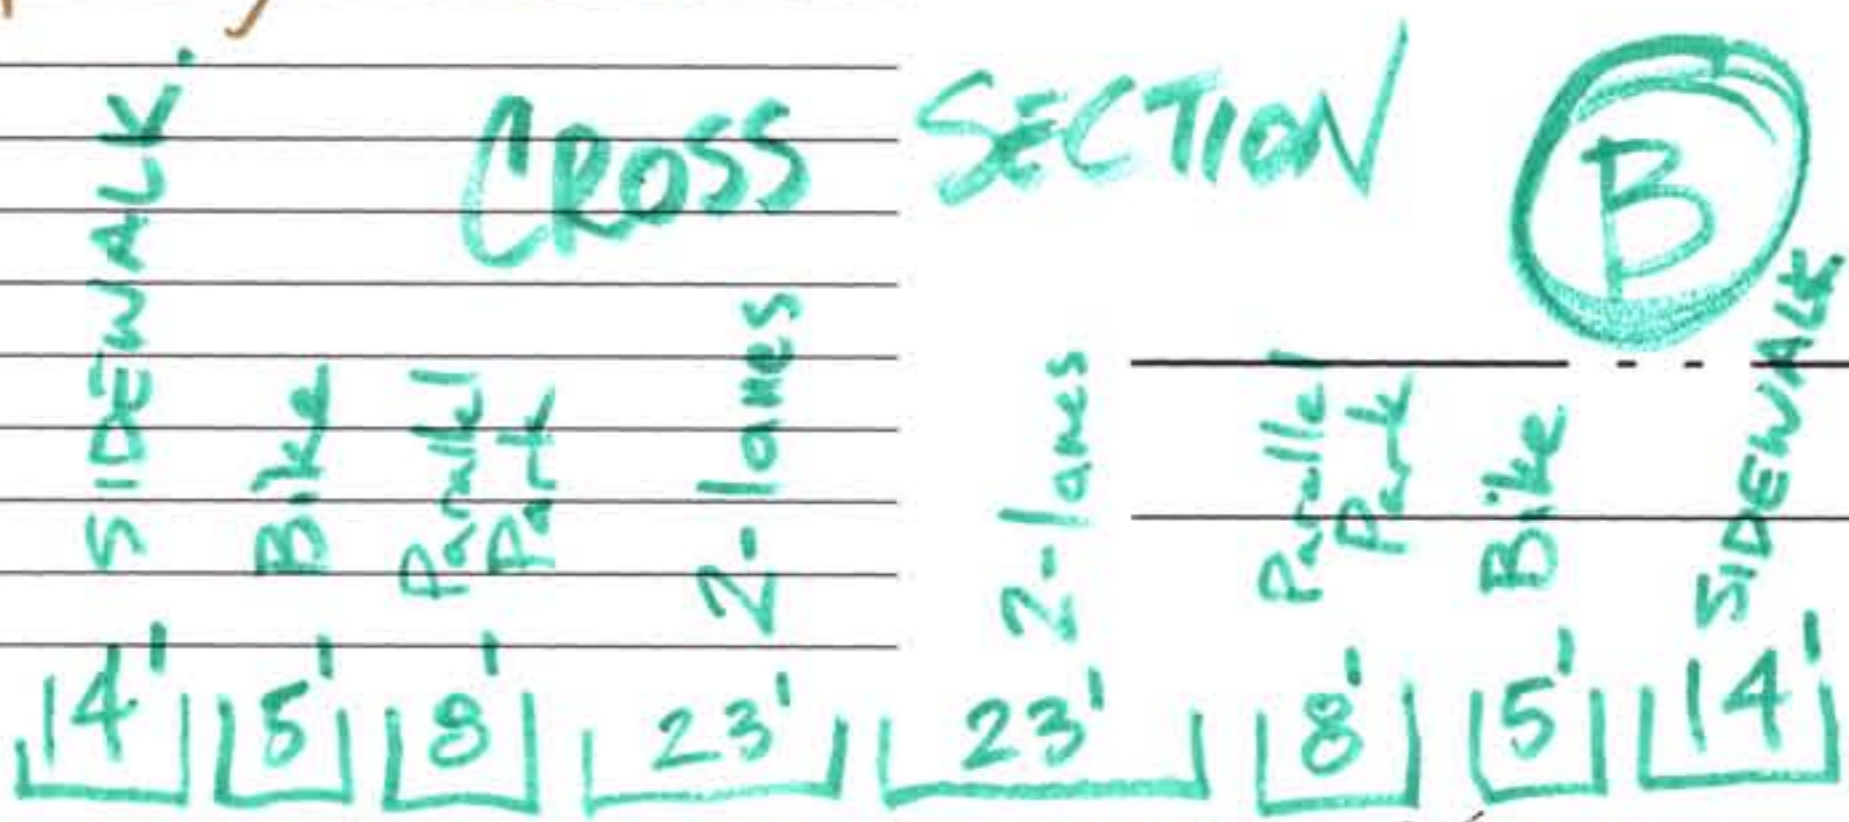 CROSS SECTION B
SIDEWALK.
Bike
Parallel
Park
2-lanes
2-lanes
Parallel
Park
Bike
SIDEWALK
14' 5' 8' 23' 23' 8' 5' 14'